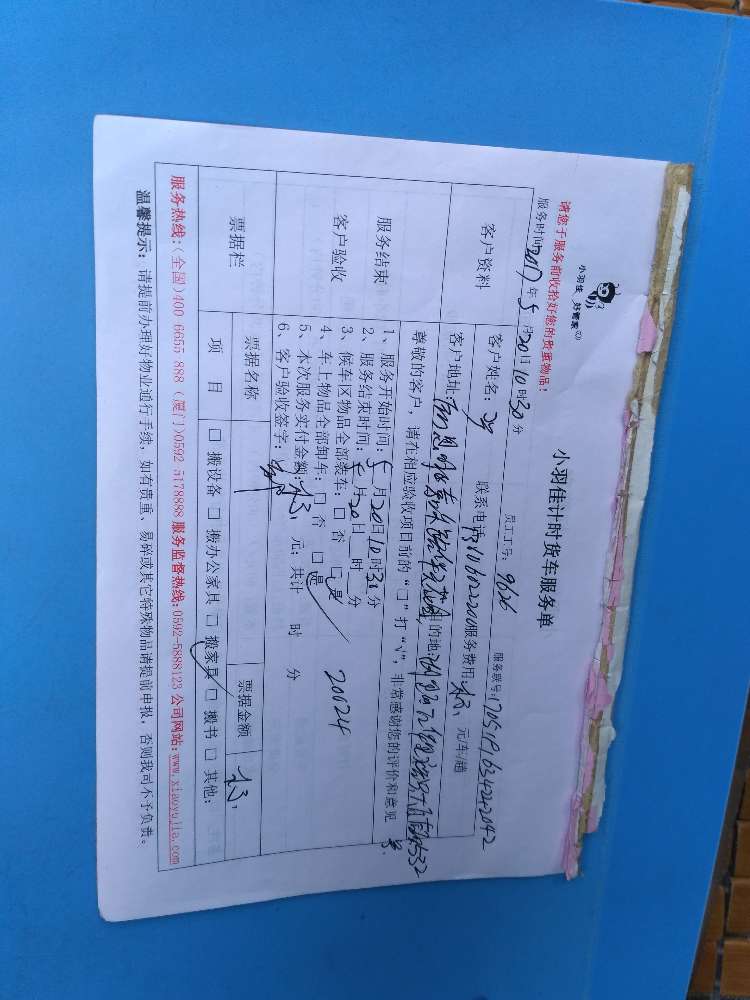 小羽佳·好管家
小羽佳计时货车服务单
请您于服务前收拾好您的贵重物品！
员工工号：9626
服务联号：1705191634242042
服务时间2017年5月20日10时30分
客户资料
客户姓名： 联系电话 服务费用： 元/车/趟
客户地址： 目的地：
尊敬的客户，请在相应验收项目前的“□”打“√”，非常感谢您的评价和意见
服务结束
客户验收
1、服务开始时间：5月20日10时30分
2、服务结束时间：5月20日 时 分
3、候车区物品全部装车：□ 否 □ 是
4、车上物品全部卸车：□ 否 □ 是
20024
5、本次服务实付金额： 元；共计 时 分
6、客户验收签字：
票据栏
票据名称 票据金额
项 目 □ 搬设备 □ 搬办公家具 □ 搬家具 □ 搬书 □ 其他：
服务热线：(全国)400 6655 888 (厦门)0592 5178888 服务监督热线：0592-5888123 公司网站：www.xiaoyujia.com
温馨提示：请提前办理好物业通行手续，如有贵重、易碎或其它特殊物品请提前申报，否则我司不予负责。